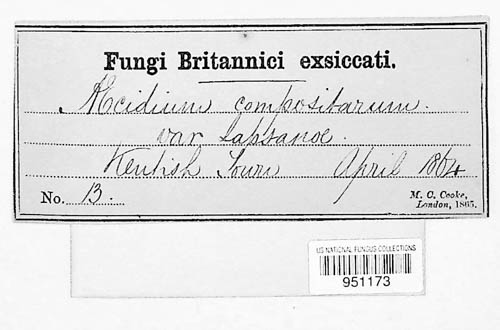 Fungi Britannici exsiccati.
Æcidium compositarum.
var lapsanæ.
Kentish Town April 1864
No. 13.
M. C. Cooke,
London, 1865.
US NATIONAL FUNGUS COLLECTIONS
951173